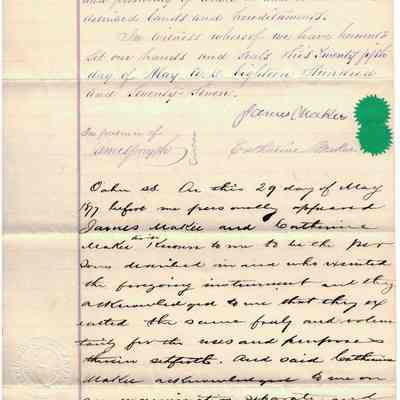 demised lands and hereditaments.
In witness whereof we have hereunto
set our hands and seals this Twenty fifth
day of May A.D. Eighteen Hundred
and Seventy-Seven.
James Makee
In presence of
Catherine Makee
Oahu ss. On this 29 day of May
1877 before me personally appeared
James Makee and Catherine
Makee Known to me to be the per
sons described in and who executed
the foregoing instrument and they
acknowledged to me that they ex
ecuted the same freely and volun
tarily for the uses and purposes
therein setforth. And said Catherine
Makee acknowledged to me on
an examination separate and